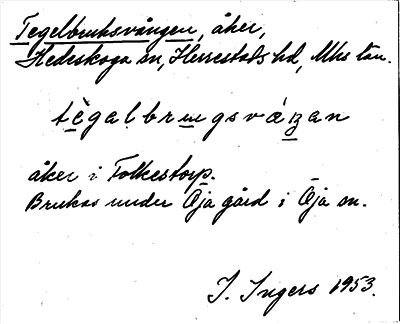 Tegelbruksvången, åker,
Hedeskoga sn, Herrestads hd, Mhs län.
åker i Folkestorp.
Brukas under Öja gård i Öja sn.
I. Ingers 1953.